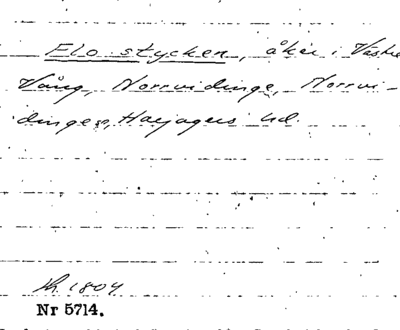 Flo stycken, åker i Västra
Vång, Norrvidinge, Norrvi-
dinge s, Harjagers hd.
1804
Nr 5714.